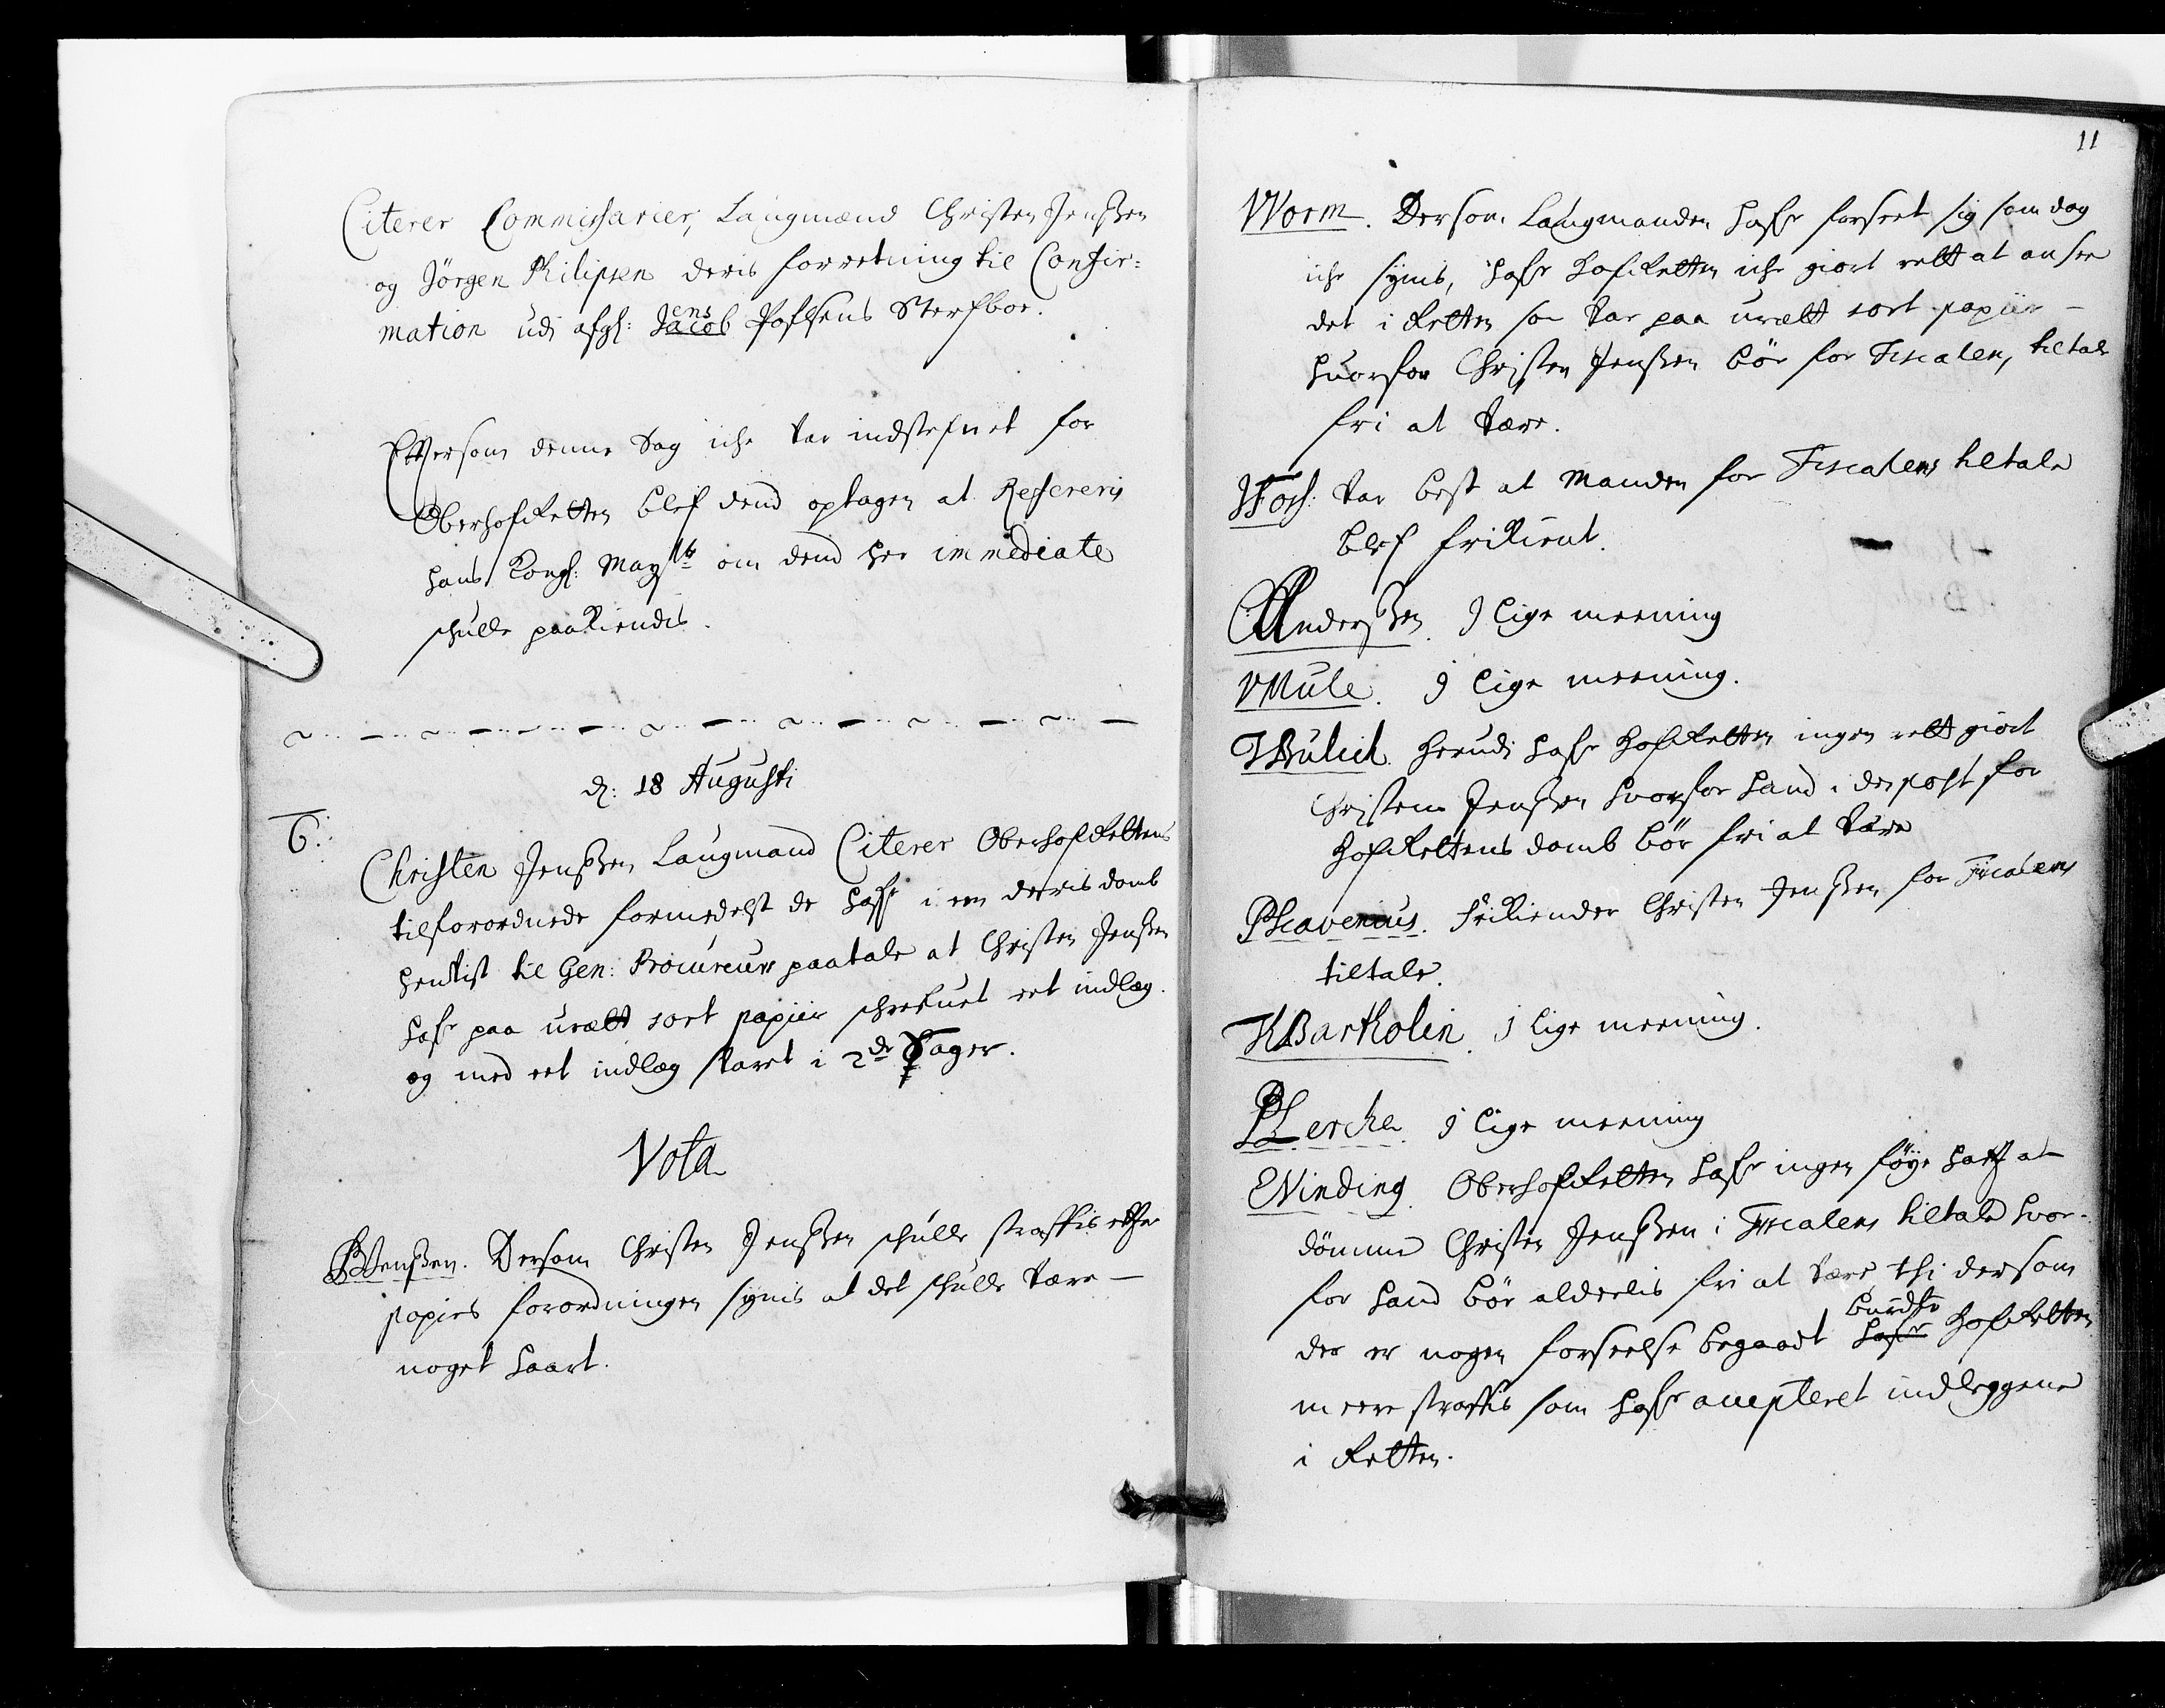 Citerer Commissarier, Laugmand Christen Jenssen
og Jörgen Philipsen deris forretning til Confir=
mation udj afgl: Jacob ens Poflsens Sterfboe.
Eftersom denne Sag iche var indstefnet for
Oberhofretten blef dend optagen at Refereris
hans Kongl: Maystz om dend her immediate
schulle paakiendis.
d: 18 Augusti
6.
Christen Jenssen Laugmand Citerer Oberhofrettens
tilforordnede formedelst de hafr i een derris domb
henvist til Gen: Procureurs paatale at Christen Jenssen
hafr paa urætt sort papiir schrefuet eet indlæg
og med eet indlæg svaret i 2de Sager.
Vota
Jenssen. Dersom Christen Jenssen schulle straffis efter
papirs forordningen synis at det schulle være
noget haart.
11
Worm. Dersom Laugmanden hafr forseet sig som dog
iche synis, hafr Hofretten iche giort rætt at ansee
det i Retten som var paa urætt sort papiir
huorfor Christen Jenssen bör for Fiscalens tiltale
fri at være.
Foss: var best at Manden for Fiscalens tiltale
blef frikient.
Anderssen. I lige meening
Mule. I lige meening.
Bulich. Herudj hafr Hofretten ingen rett giort
Christen Jenssen hvorfor hand i den post for
Hofrettens domb bör fri at være
PScavenius. Frikiender Christen Jenssen for Fiscalens
tiltale.
Bartholin. I lige meening.
PLerche. I lige meening
Vinding. Oberhofretten hafr ingen föye haft at
dömme Christen Jenssen i Fiscalens tiltale hvor-
for hand bör alderlis fri at være, thi dersom
der er nogen forseelse begaadt hafr burdte Hofretten
meere straffis som hafr accepteret indleggene
i Retten.